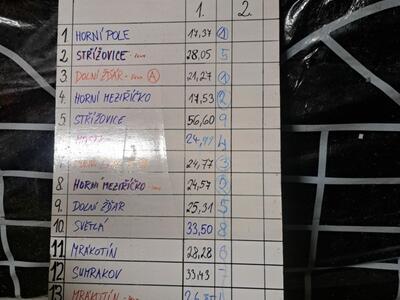 1. 2.
1 HORNÍ POLE 17,37 1
2. STŘÍŽOVICE 28,05 5
3 DOLNÍ ŽĎÁR A 21,27 1
4. HORNÍ MEZIŘÍČKO 17,53 2
5. STŘÍŽOVICE 56,60 9
24,99 4
24,77 3
8. HORNÍ MEZIŘÍČKO 24,57
9. DOLNÍ ŽĎÁR 25,31 5
10. SVĚTLÁ 33,50 8
11 MRÁKOTÍN 28,28 6
12 SUMRAKOV 33,43 7
13 MRÁKOTÍN